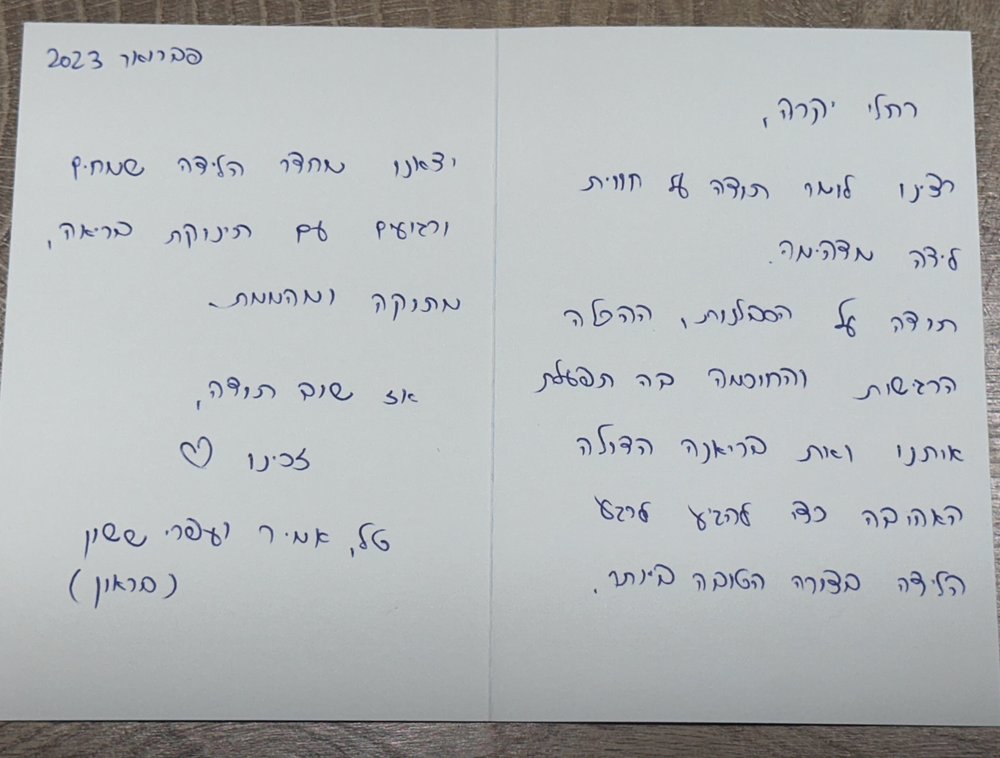 רחלי יקרה,
רצינו לומר תודה על חווית
לידה מדהימה.
תודה על הסבלנות, ההכלה
הרגישות והחוכמה בה תפעלת
אותנו ואת בריאנה הדולה
האהובה כדי להגיע לרגע
הלידה בצורה הטובה ביותר.
פברואר 2023
יצאנו מחדר הלידה שמחים
ורגועים עם תינוקת בריאה,
מתוקה ומהממת.
אז שוב תודה,
זכינו ♡
טל, אמיר ועפרי ששון
(בראון)